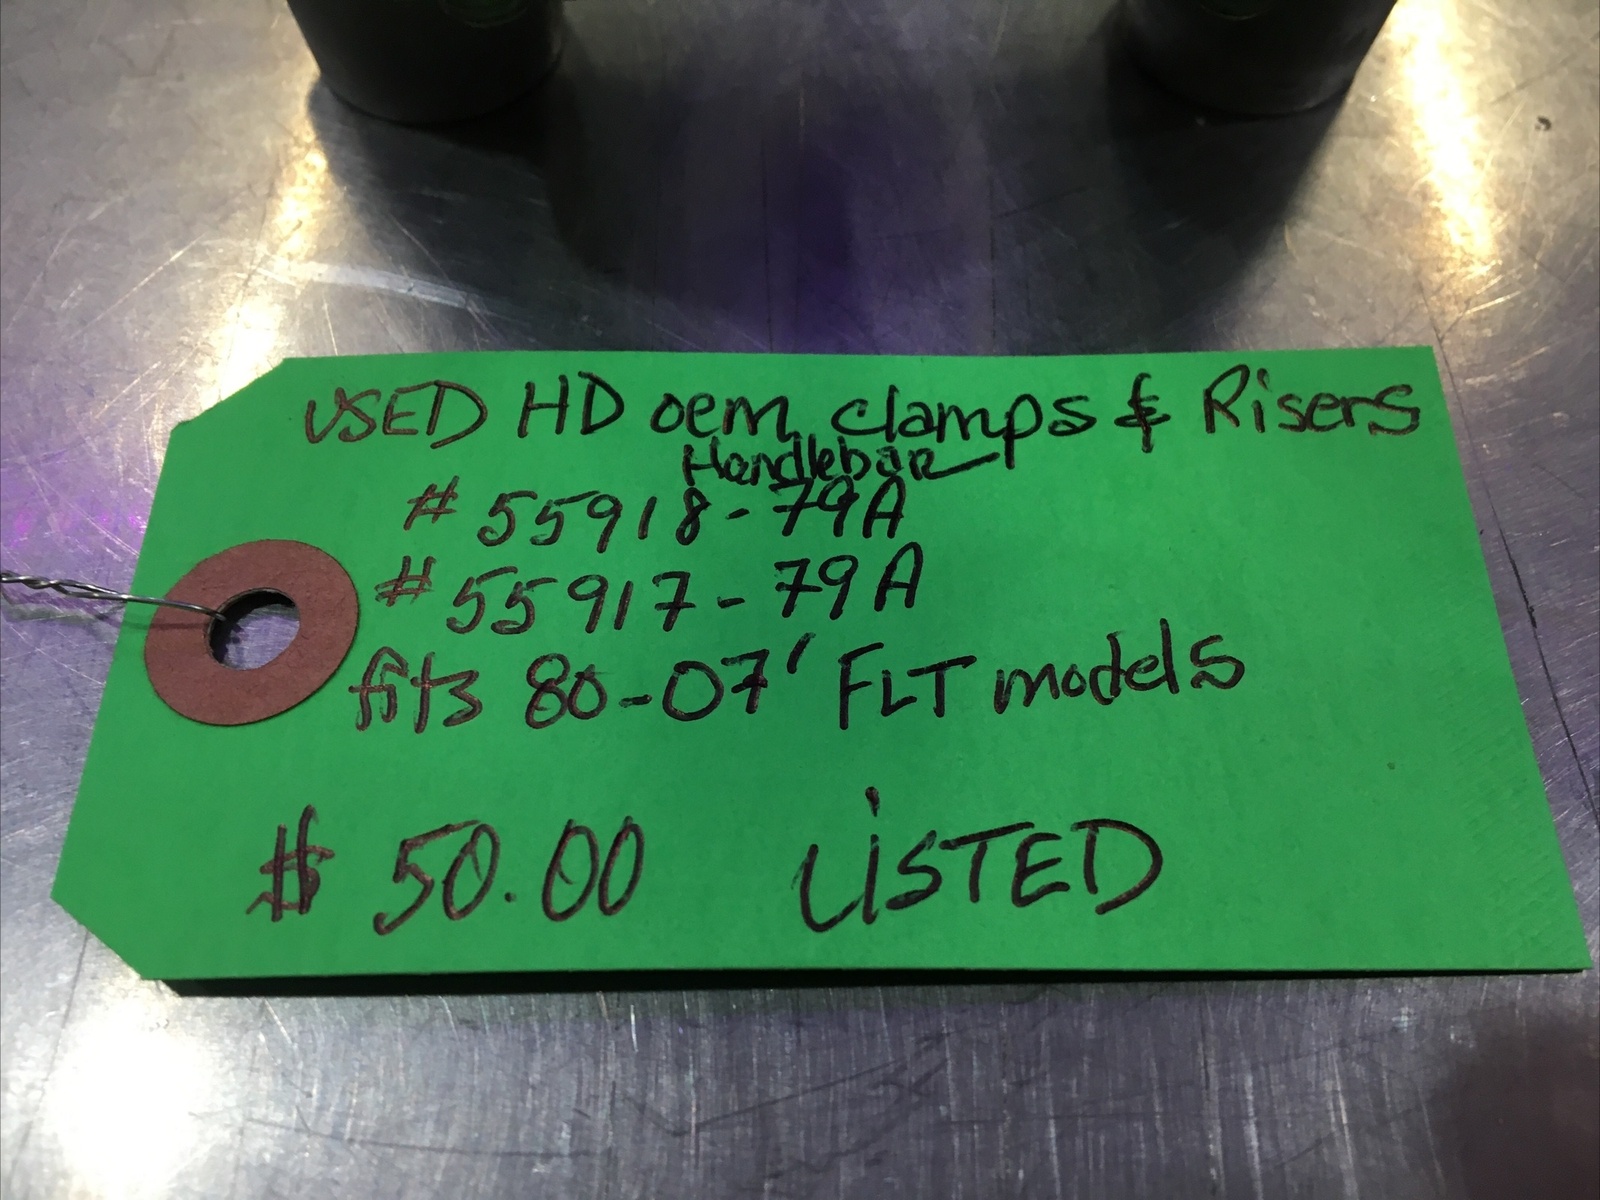 USED HD oem clamps & Risers
Handlebar
# 55918-79A
# 55917-79A
fits 80-07' FLT models
$ 50.00 LiSTED